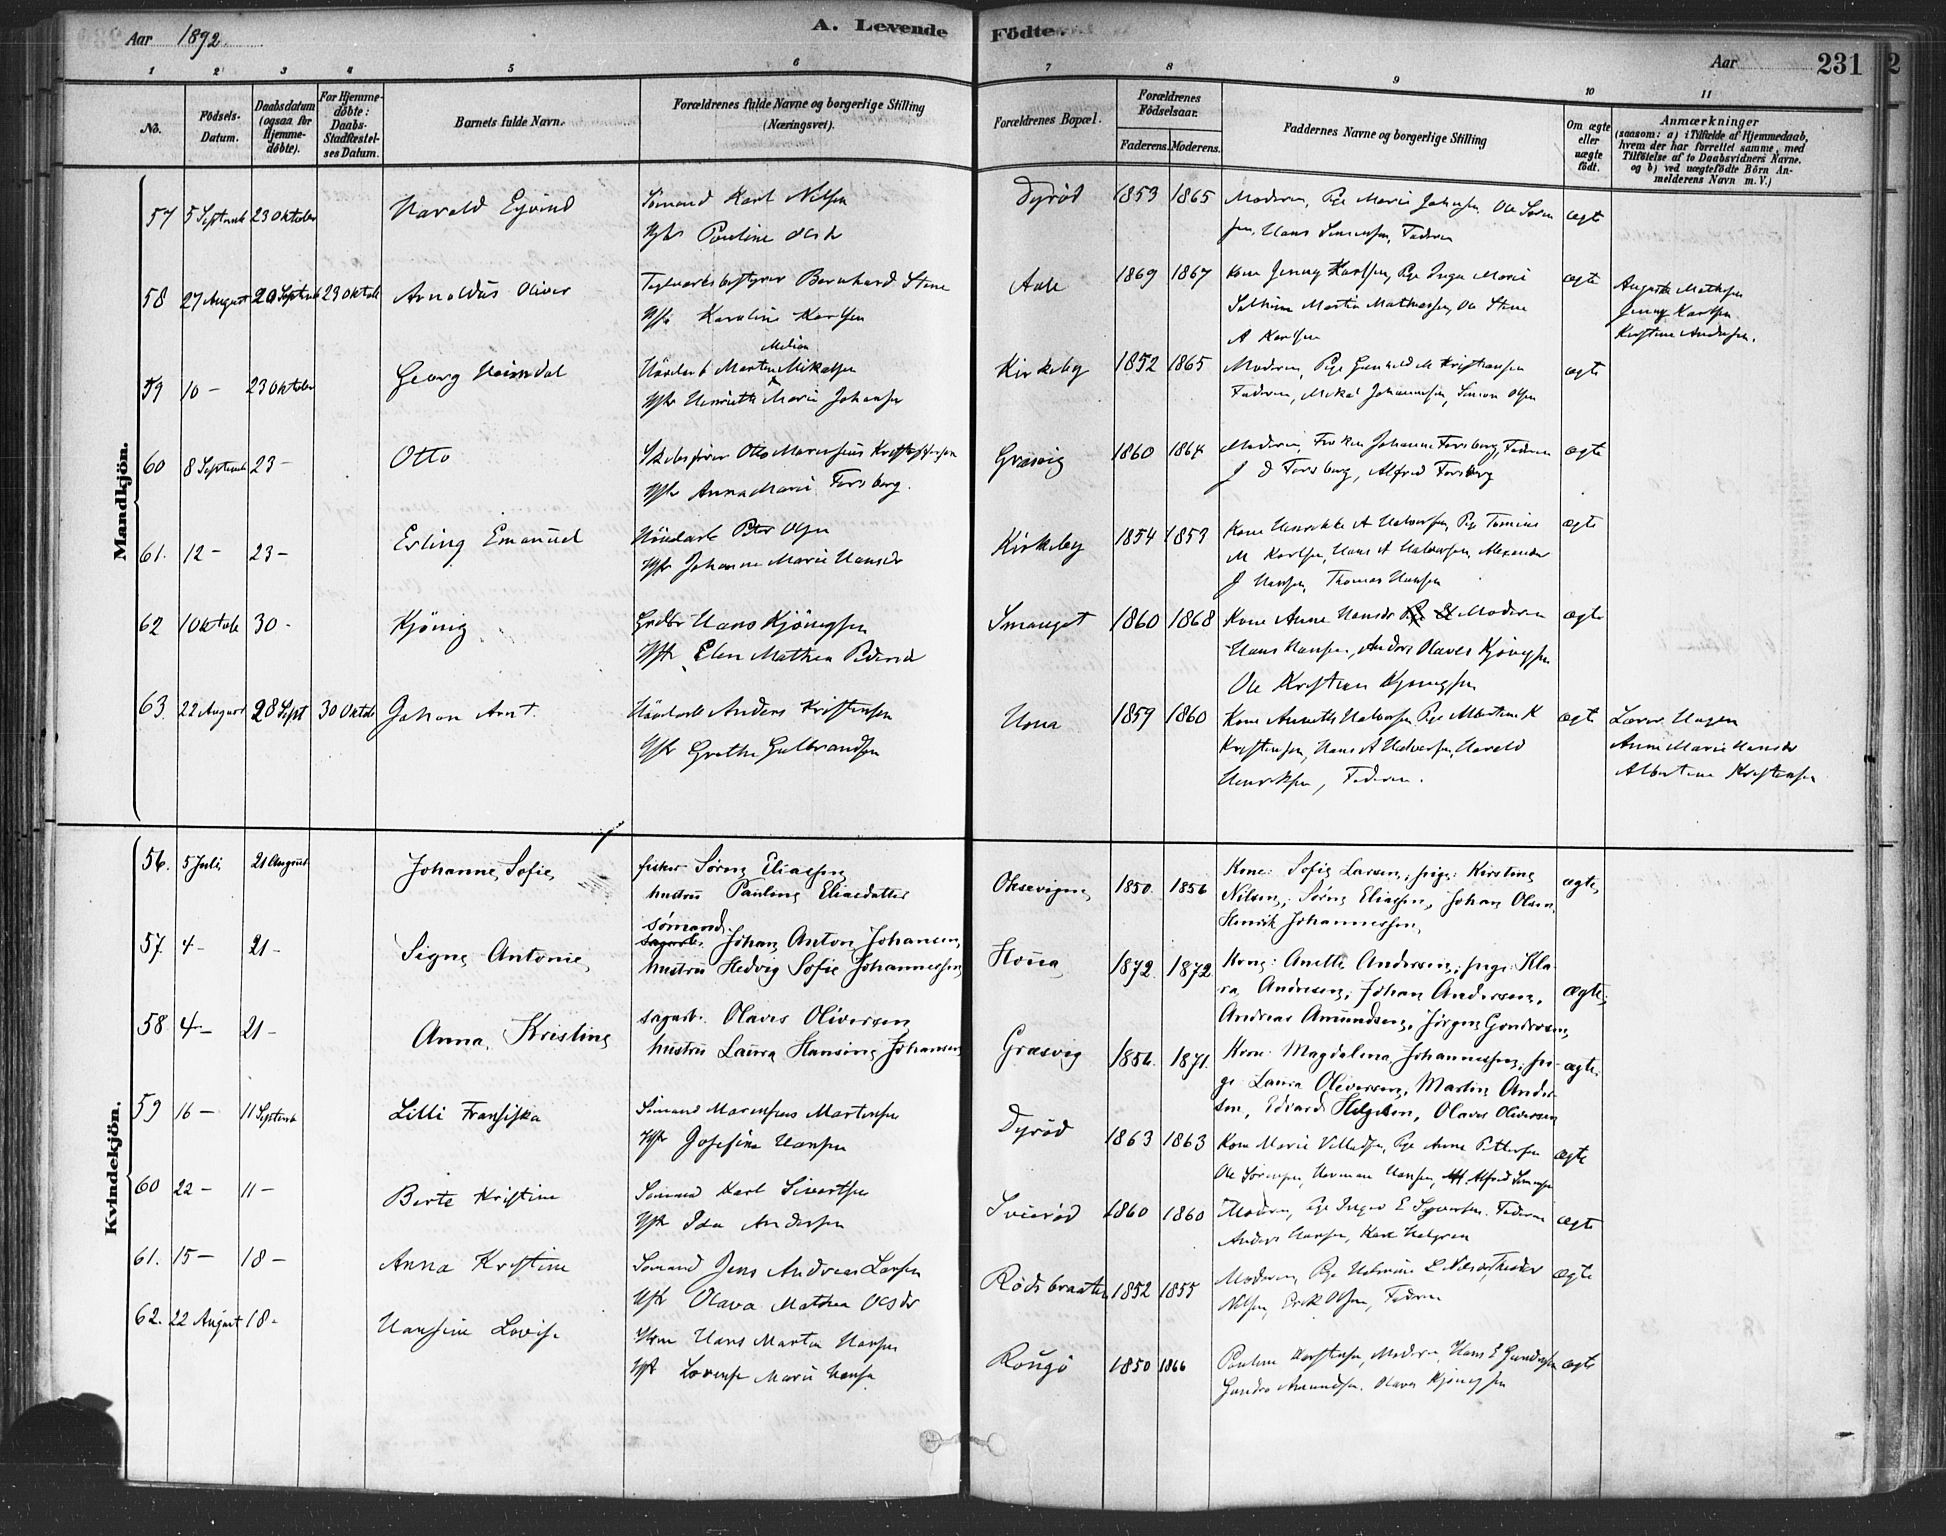 Aar 1892
A. Levende Födte.
Aar 231
1 2 3 4 5 6 7 8 9 10 11
No.
Födsels-Datum.
Daabsdatum (ogsaa for Hjemmedöbte).
For Hjemmedöbte: Daabs-Stadfæstelses Datum.
Barnets fulde Navn.
Forældrenes fulde Navne og borgerlige Stilling (Næringsvei).
Forældrenes Bopæl.
Forældrenes Födselsaar.
Faderens. Moderens.
Faddernes Navne og borgerlige Stilling
Om ægte eller uægte födt.
Anmærkninger
(saasom: a) i Tilfælde af Hjemmedaab, hvem der har forrettet samme, med Tilföielse af to Daabsvidners Navne. og b) ved uægtefödte Börn Anmelderens Navn m. V.)
Mandkjön.
57 5 Septemb 23 Oktober Harald Eyvind Sömand Karl Nilsen Dyröd 1853 1865 Moderen, Pige Marie Johansen, Ole Søren
Pauline Olsdr sen, Hans Simensen, Faderen ægte
58 27 August 20 Septemb 23 Oktob Arnoldus Oliver Bernhard Stene Aale 1869 1867 Kone Jenny Karlsen, Pige Inga Marie ægte
Karoline Karlsen Martin Mathiassen, Ole Stene Jenny Karlsen
A Karlsen Kristine Andersen.
59 10 - 23 Oktober Georg Heimdal Marten Mikalsen Kirkeby 1852 1865 Moderen, Pige Gunhild M Kristiansen ægte
Henriette Marie Johansen Faderen, Mikal Johannesen, Simon Olsen
60 8 Septemb 23 - Otto Skibsfører Otto Marensius Kristoffersen Græsvig 1860 1864 Moderen, Frøken Johanne Forsberg, Faderen ægte
Hstr Anna Marie Forsberg. J O Forsberg, Alfred Forsberg
61. 12 - 23 - Erling Emanuel Peter Olsen Kirkeby 1854 1853 Kone Henrikke A Halvorsen, Pige Tomine ægte
Hstr Johanne Marie Hansdr M Karlsen, Hans A Halvorsen, Alexander
J Hansen, Thomas Hansen
62 1 Oktob 30 - Kjönig Hans Kjönigsen Smauget 1860 1868 Kone Anne Hansdr Moderen ægte
Hstr Elen Mathea Pedersd Hans Hansen, Anders Olaves Kjönigsen
Ole Kristian Kjönigsen
63. 22 August 28 Sept 30 Oktob Johan Arnt. Anders Kristensen Houa 1859 1860 Kone Anneth Halvorsen Pige Albertine K ægte Lærer Hagen
Hstr Grethe Gulbrandsen Kristensen, Hans A Halvorsen, Harald Anne Marie Hansdr
Henriksen, Faderen. Albertine Kristensen
Kvindekjön.
56. 5 Juli 21 August Johanne, Sofie, fisker Sørens Eliassen, Oksevigen, 1850. 1856 Kone: Sofie Larsen, pige: Kirstine ægte,
hustru Pauline Eliasdatter Nilsen, Søren Eliassen, Johan Olsen,
Henrik Johannessen,
57. 4 - 21 - Signe Antonie, sömand. Johan Anton Johansen, Houa, 1872. 1872. Kone: Anette Andersen; pige: Kla-
hustru Hedvig Sofie Johannessen, ra Andresen; Johan Andersen, ægte;
Andreas Amundsen, Jørgen Gundersen,
58 4 - 21 - Anna, Kristine sagarb. Olaves Oliversen Græsvig 1856. 1871. Kone: Magdalena Johannessen, pi- ægte.
hustru Laura Hansine Johansen, ge Laura Oliversen, Martin Ander-
sen, Edvard Helgesen, Olaves Oliversen
59 16 - 11 Septemb Lilli Fransiska Sömand Marensius Martinsen Dyröd 1863 1863 Kone Marie Villadsen, Pige Anne Pettersen ægte
Hstr Josefine Hansen Ole Sörensen, Herman Hansen, Alfred Simensen
60 22 - 11 - Berte Kristine Sömand Karl Sivertsen Svieröd 1860 1860 Moderen, Pige Inger E Syversen. Faderen ægte
Hstr Ida Andersen Anders Hansen, Karl Helgesen
61. 15 - 18 - Anna Kristine Sömand Jens Andreas Larsen Rödsbraaten 1852 1855 Moderen, Pige Helmine E Nilsen, Theodor ægte
Hstr Olava Mathea Olsdr Nilsen, Erik Olsen, Faderen
62. 22 August 18 - Hansine Lovise Hans Martin Hansen Rougö 1850 1866 Pauline Karstensen, Moderen, Hans E Gundersen ægte
Hst Lovise Marie Hansen Gunder Amundsen. Olaves Kjönigsen